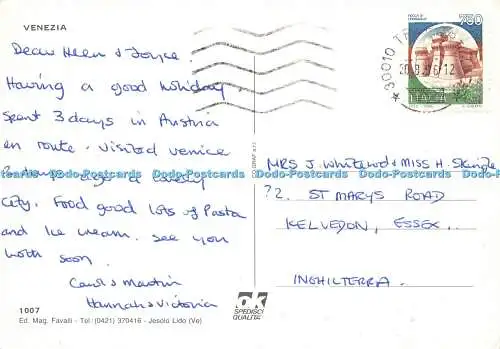 VENEZIA
Dear Helen & Joyce.
Having a good holiday
spent 3 days in Austria
en route. Visited Venice
a lovely
City. Food good lots of Pasta
and Ice cream. See you
both soon.
Carol & Martin
Hannah & Victoria
1007
Ed. Mag. Favalli - Tel: (0421) 370416 - Jesolo Lido (Ve)
ok
SPEDISCI
QUALITA'
750
30010
MRS J. Whitehead & MISS H.
72. ST MARYS ROAD
KELVEDON, ESSEX.
INGHILTERRA.
Dodo-Postcards Dodo-Postcards Dodo-Postcards Dodo-Postcards Dodo-Postcards